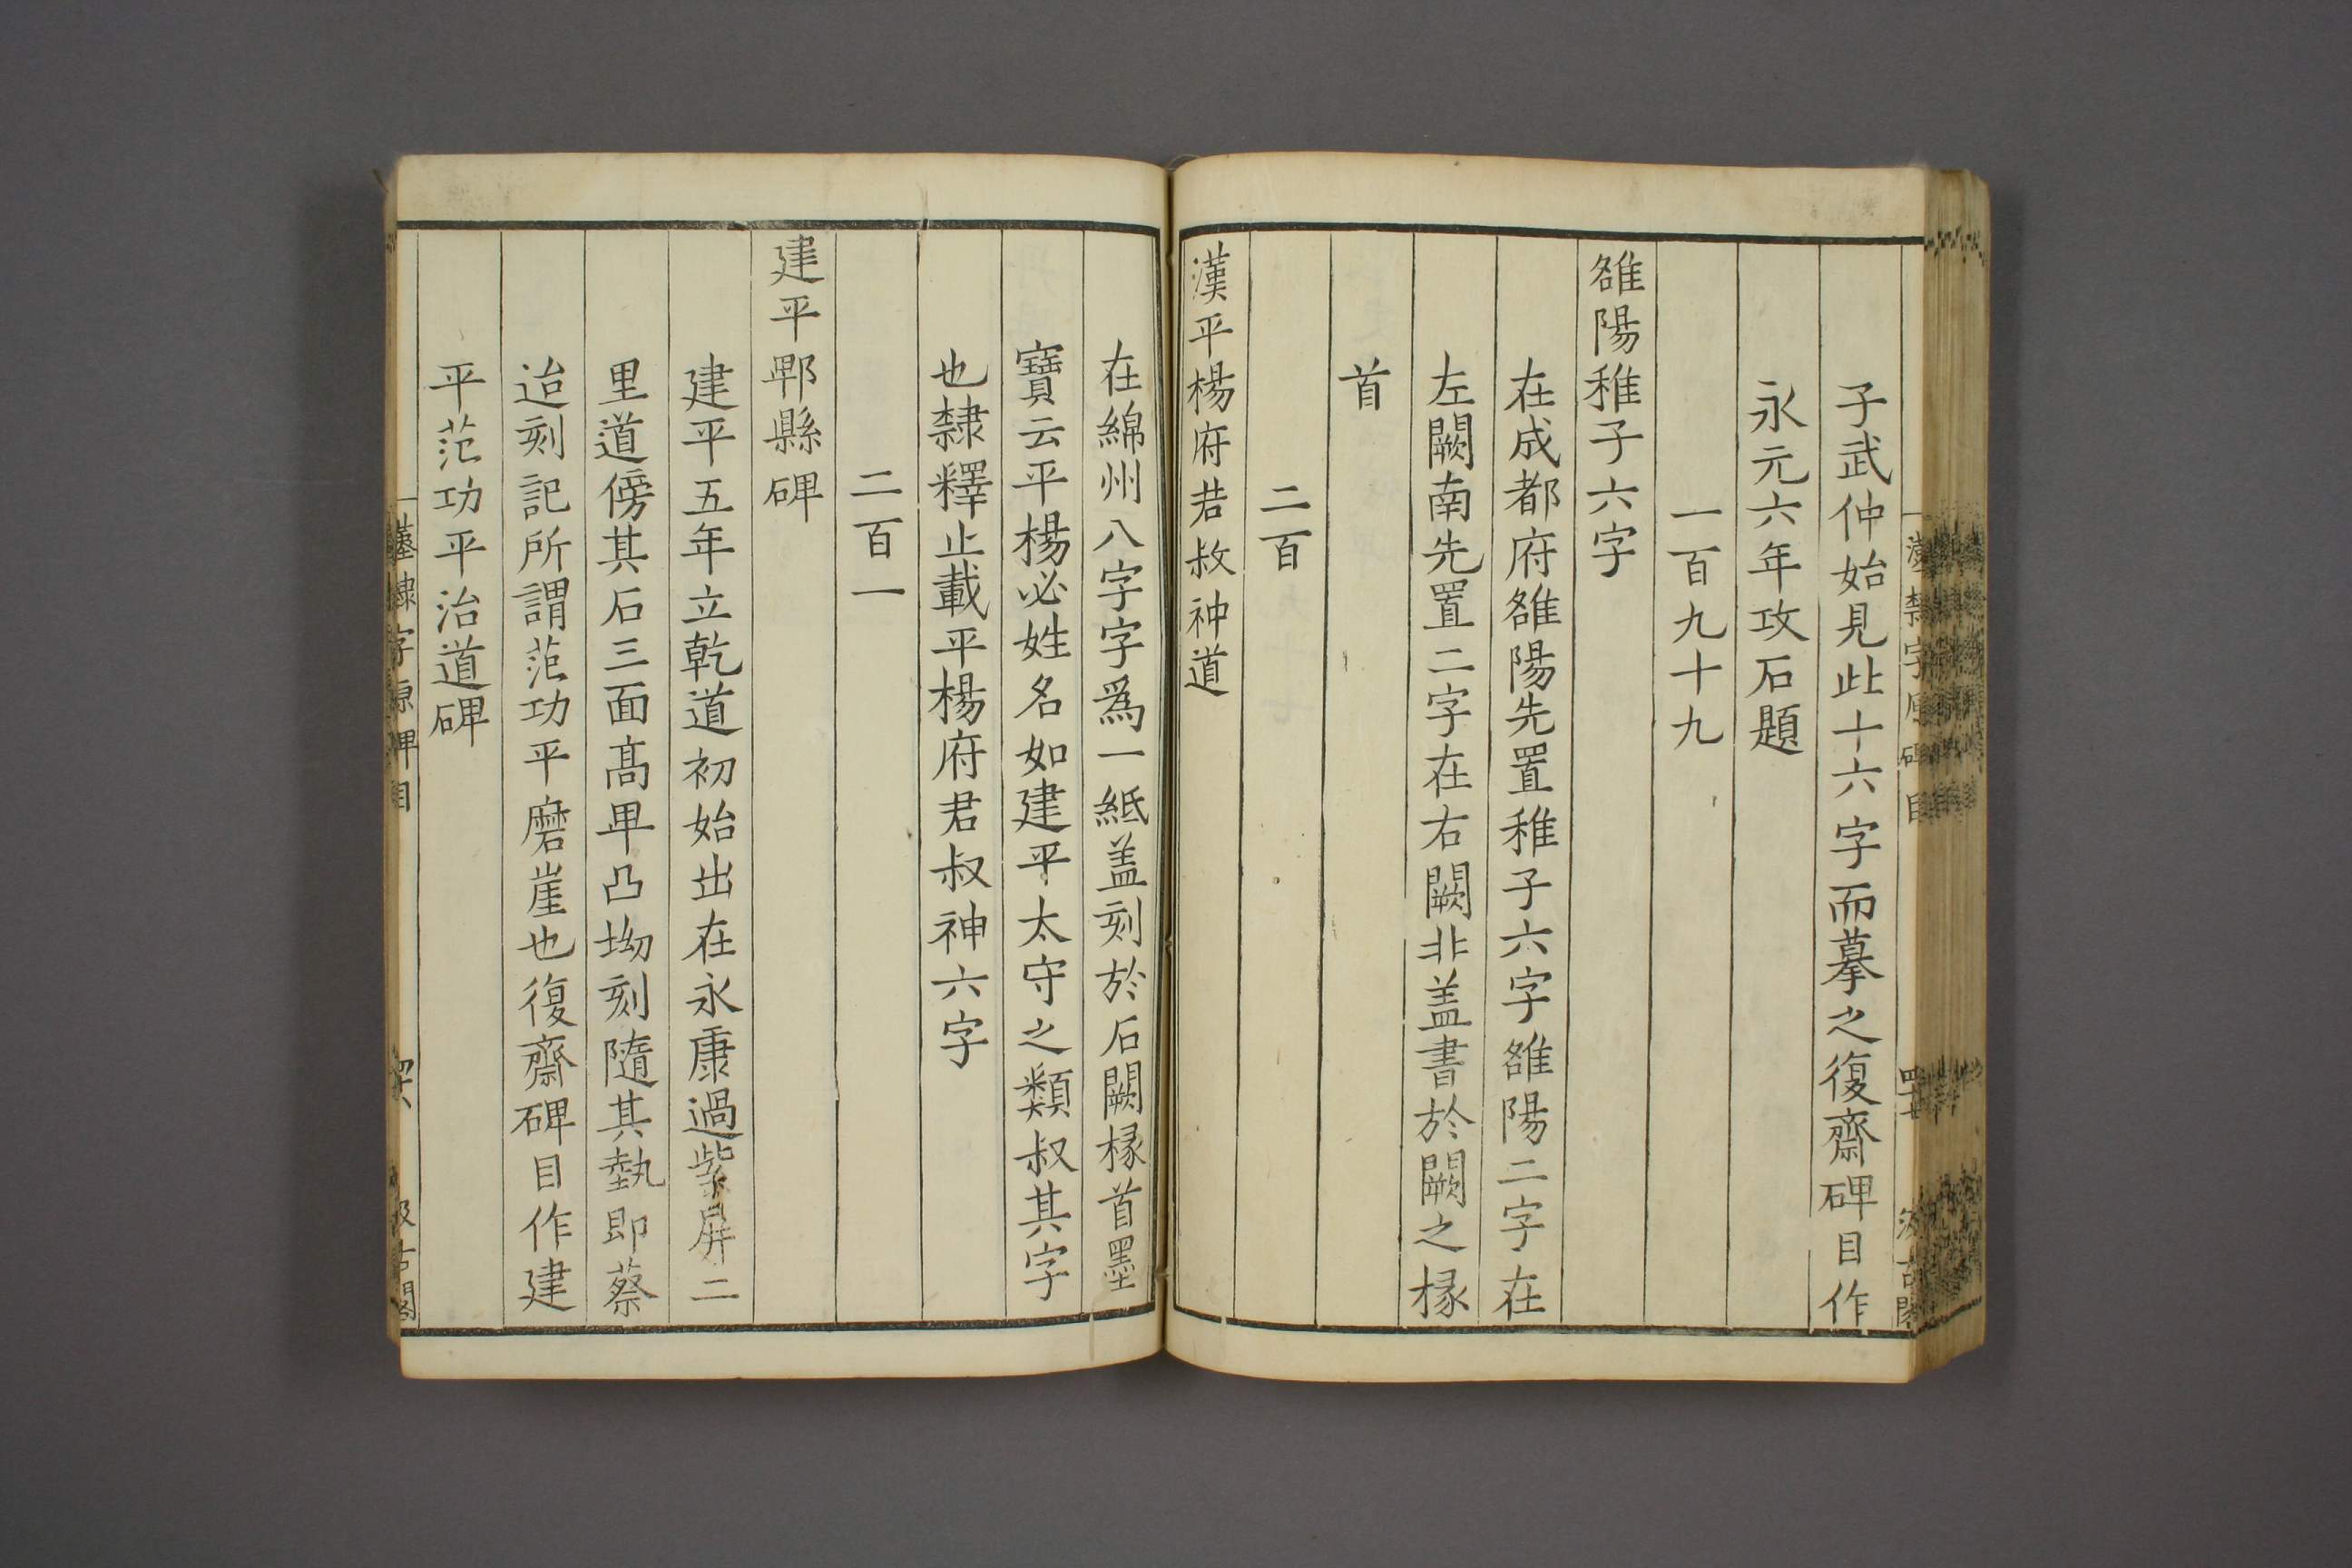 子武仲始見此十六字而摹之復齋碑目作
永元六年攻石題
一百九十九
雒陽稚子六字
在成都府雒陽先置稚子六字雒陽二字在
左闕南先置二字在右闕非盖書於闕之椽
首
二百
漢平楊府君叔神道
在綿州八字字爲一紙盖刻於石闕椽首墨
寶云平楊必姓名如建平太守之類叔其字
也隸釋止載平楊府君叔神六字
二百一
建平郫縣碑
建平五年立乾道初始出在永康過紫屏二
里道傍其石三面髙卑凸坳刻隨其埶即蔡
迨刻記所謂范功平磨崖也復齋碑目作建
平范功平治道碑
漢隸字原碑目
汲古閣